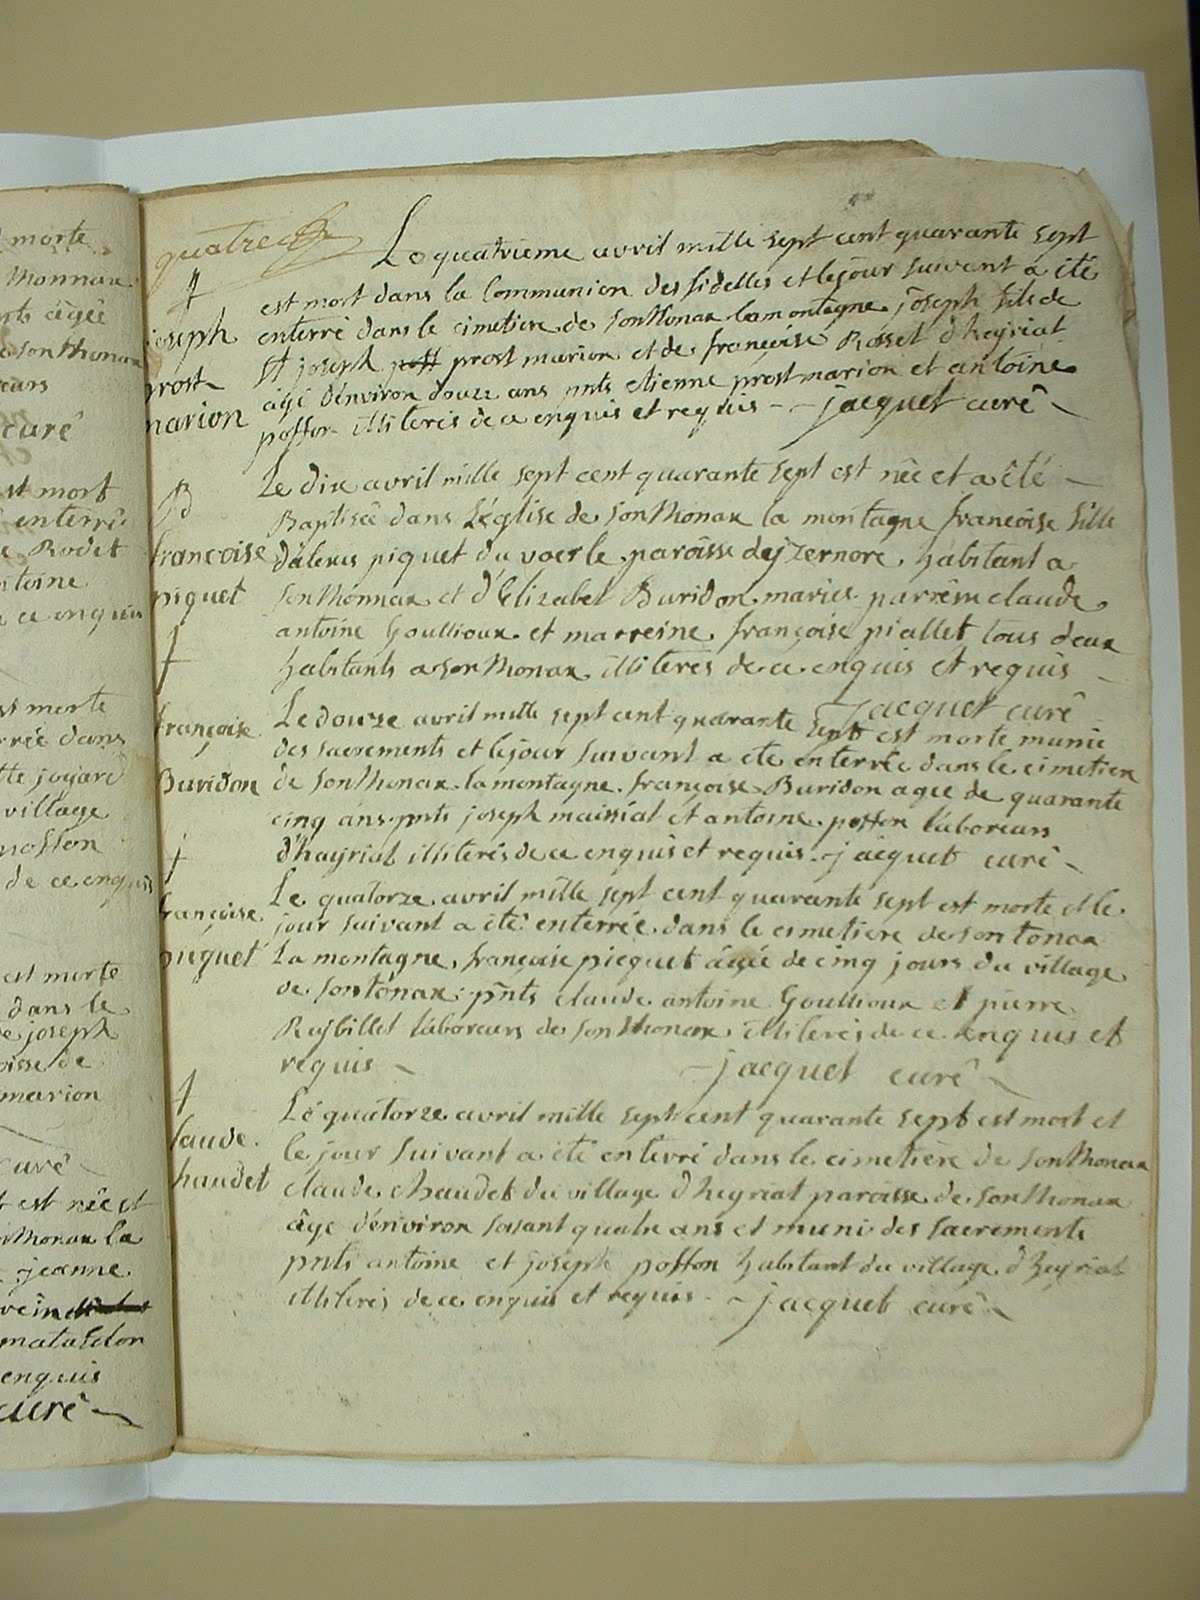 morte
Thonnax
nts âgée
sonthonax
eurs
curé
st mort
enterré
Rodet
ntoine
a ce enquis
st morte
rrée dans
tte joyard
village
mosson
de ce enquis
est morte
dans le
de joseph
oisse de
marion
curé
t est née et
nthonax la
jeanne
matasson
enquis
curé
quatre
Le quatrieme avril mille sept cent quarante sept
est mort dans la Communion des fidelles et le jour suivant a été
joseph
enterré dans le cimetiere de sonthonax lamontagne joseph fils de
joseph prost marion et de françoise Rosset d'heyriat
prost
agé d'environ douze ans pnts etienne prost marion et antoine
marion
posson illiterés de ce enquis et requis - jacquet curé
Le dix avril mille sept cent quarante sept est née et a été
B
Baptisée dans L'église de sonthonax la montagne françoise fille
francoise
d'alexis piquet du voerle paroisse dejzernore habitant a
piquet
sonthonnax et d'Elizabet Buridon mariés parrein claude
antoine Goullioux et marreine françoise piallet tous deux
habitants a sonthonax illiterés de ce enquis et requis
jacquet curé
françoise
Le douze avril mille sept cent quarante sept est morte munie
des sacrements et le jour suivant a été enterrée dans le cimetiere
Buridon
de sonthonax la montagne françoise Buridon agée de quarante
cinq ans pnts joseph maissiat et antoine posson laboreurs
d'hayriat illiterés de ce enquis et requis - jacquet curé
Le quatorze avril mille sept cent quarante sept est morte et le
françoise
jour suivant a été enterrée dans le cimetiere de sontonax
picquet
La montagne françoise picquet âgée de cinq jours du village
de sontonax pnts claude antoine Goullioux et pierre
Rejbillet laboreurs de sonthonax illiterés de ce enquis et
requis - jacquet curé
Le quatorze avril mille sept cent quarante sept est mort et
laude
le jour suivant a été enterré dans le cimetiere de sonthonax
haudet
claude chaudet du village d'heyriat paroisse de sonthonax
âgé d'environ soisant quatre ans et muni des sacrements
pnts antoine et joseph posson habitant du village d'heyriat
illiterés de ce enquis et requis - jacquet curé